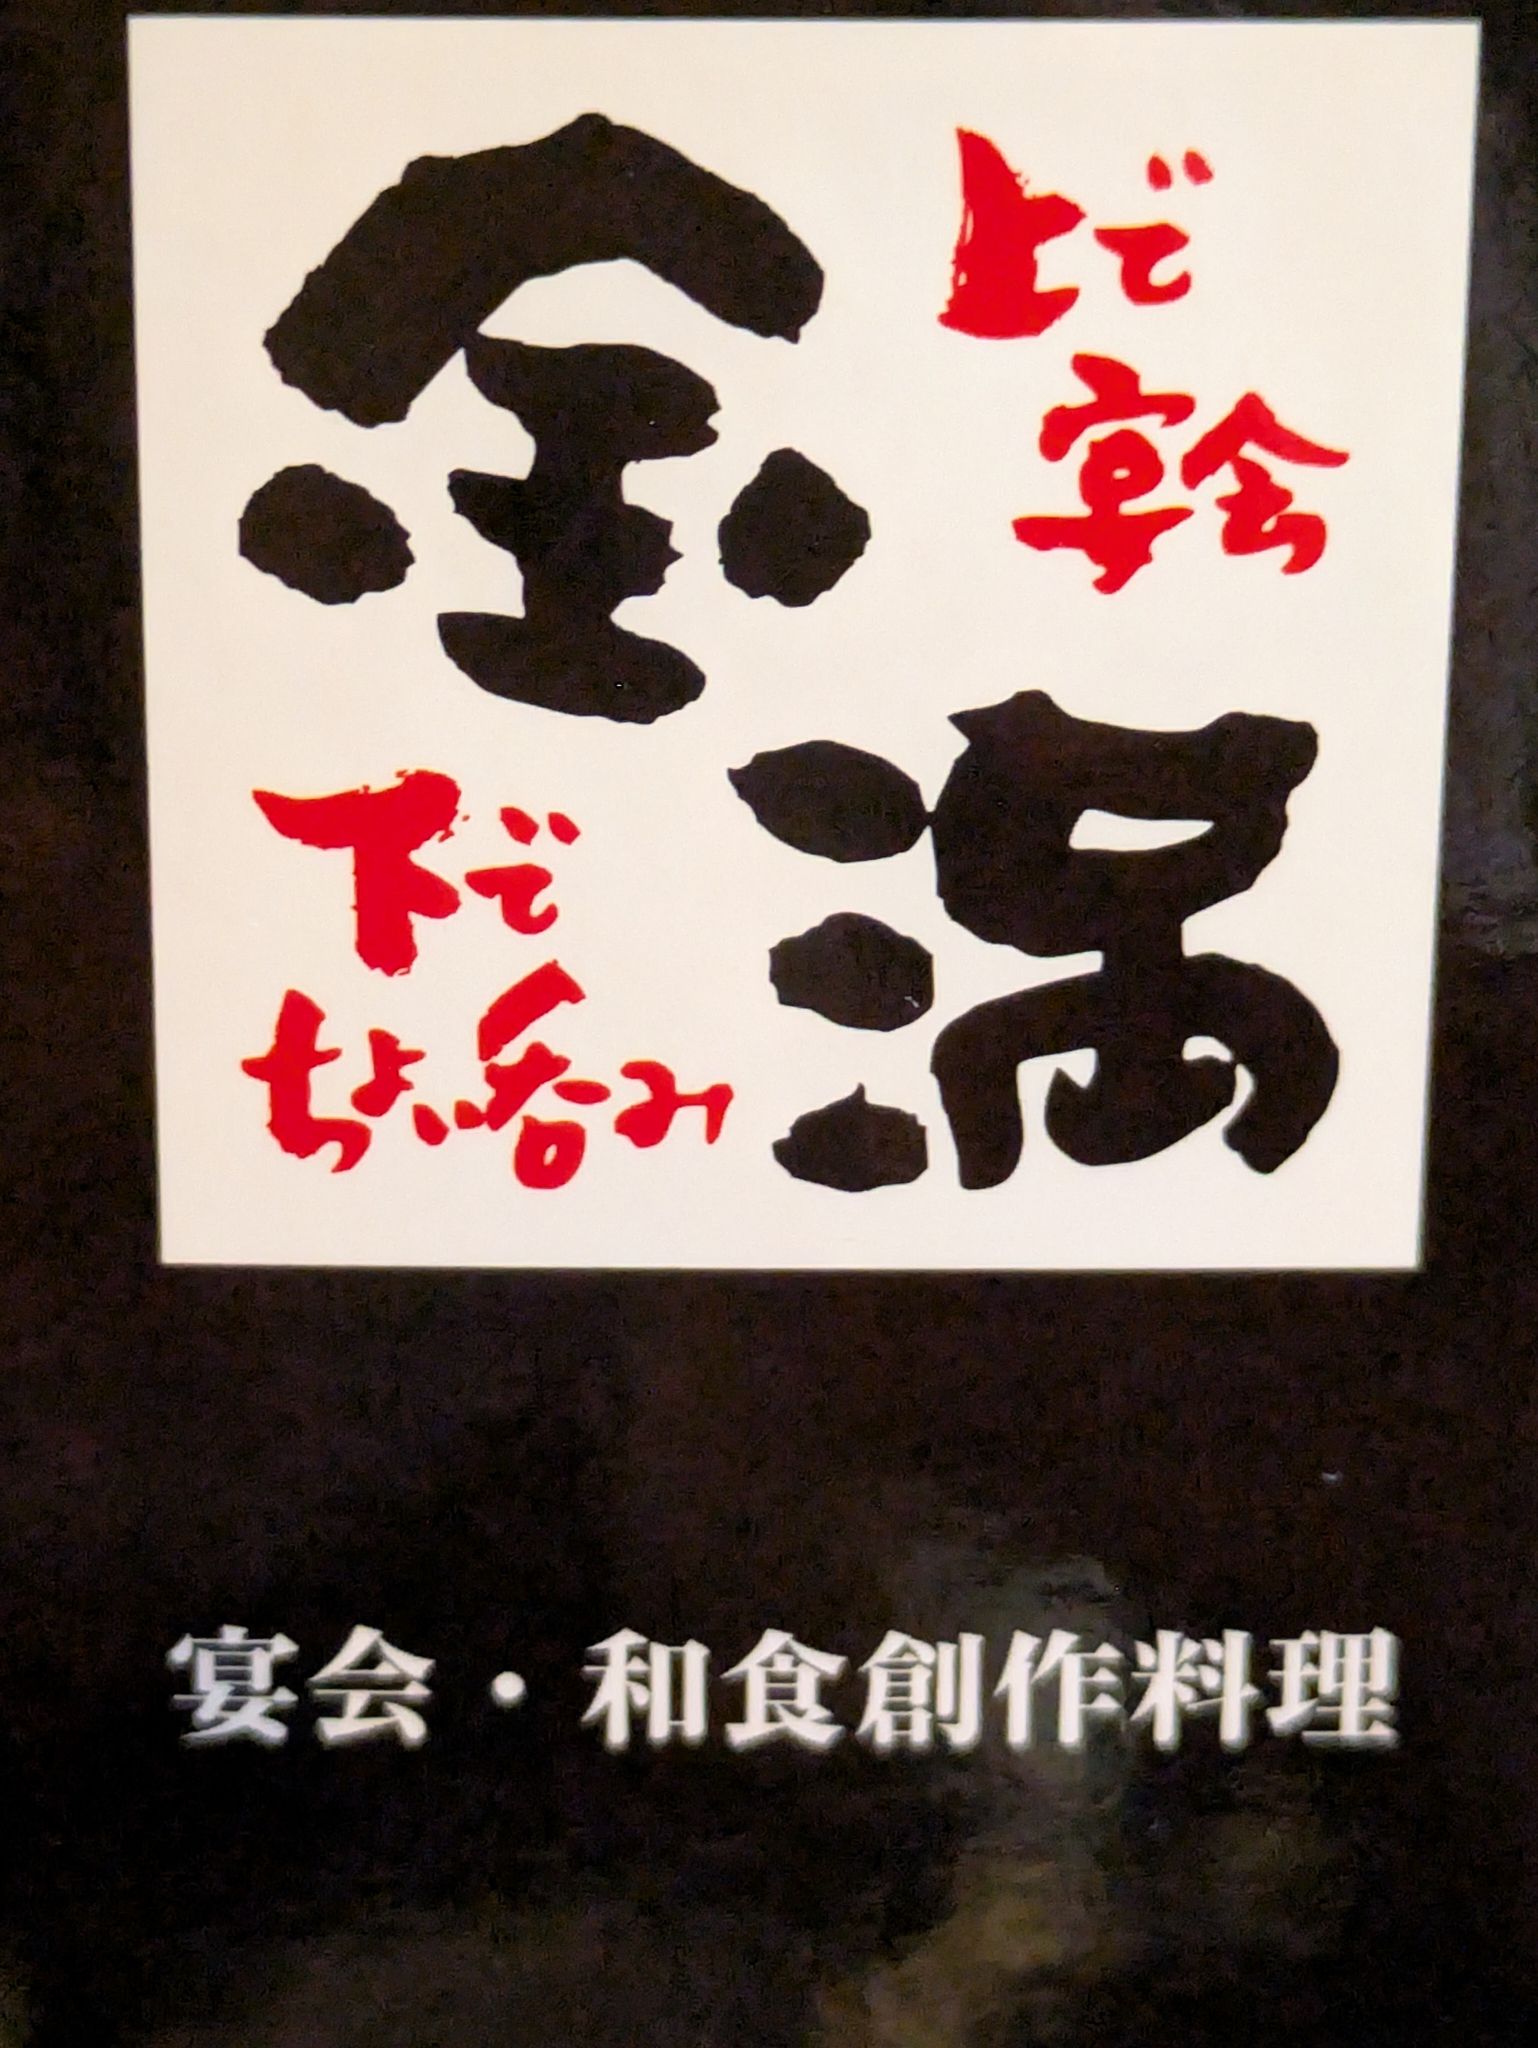 金
上で
宴会
渦
下で
ちょい呑み
宴会・和食創作料理